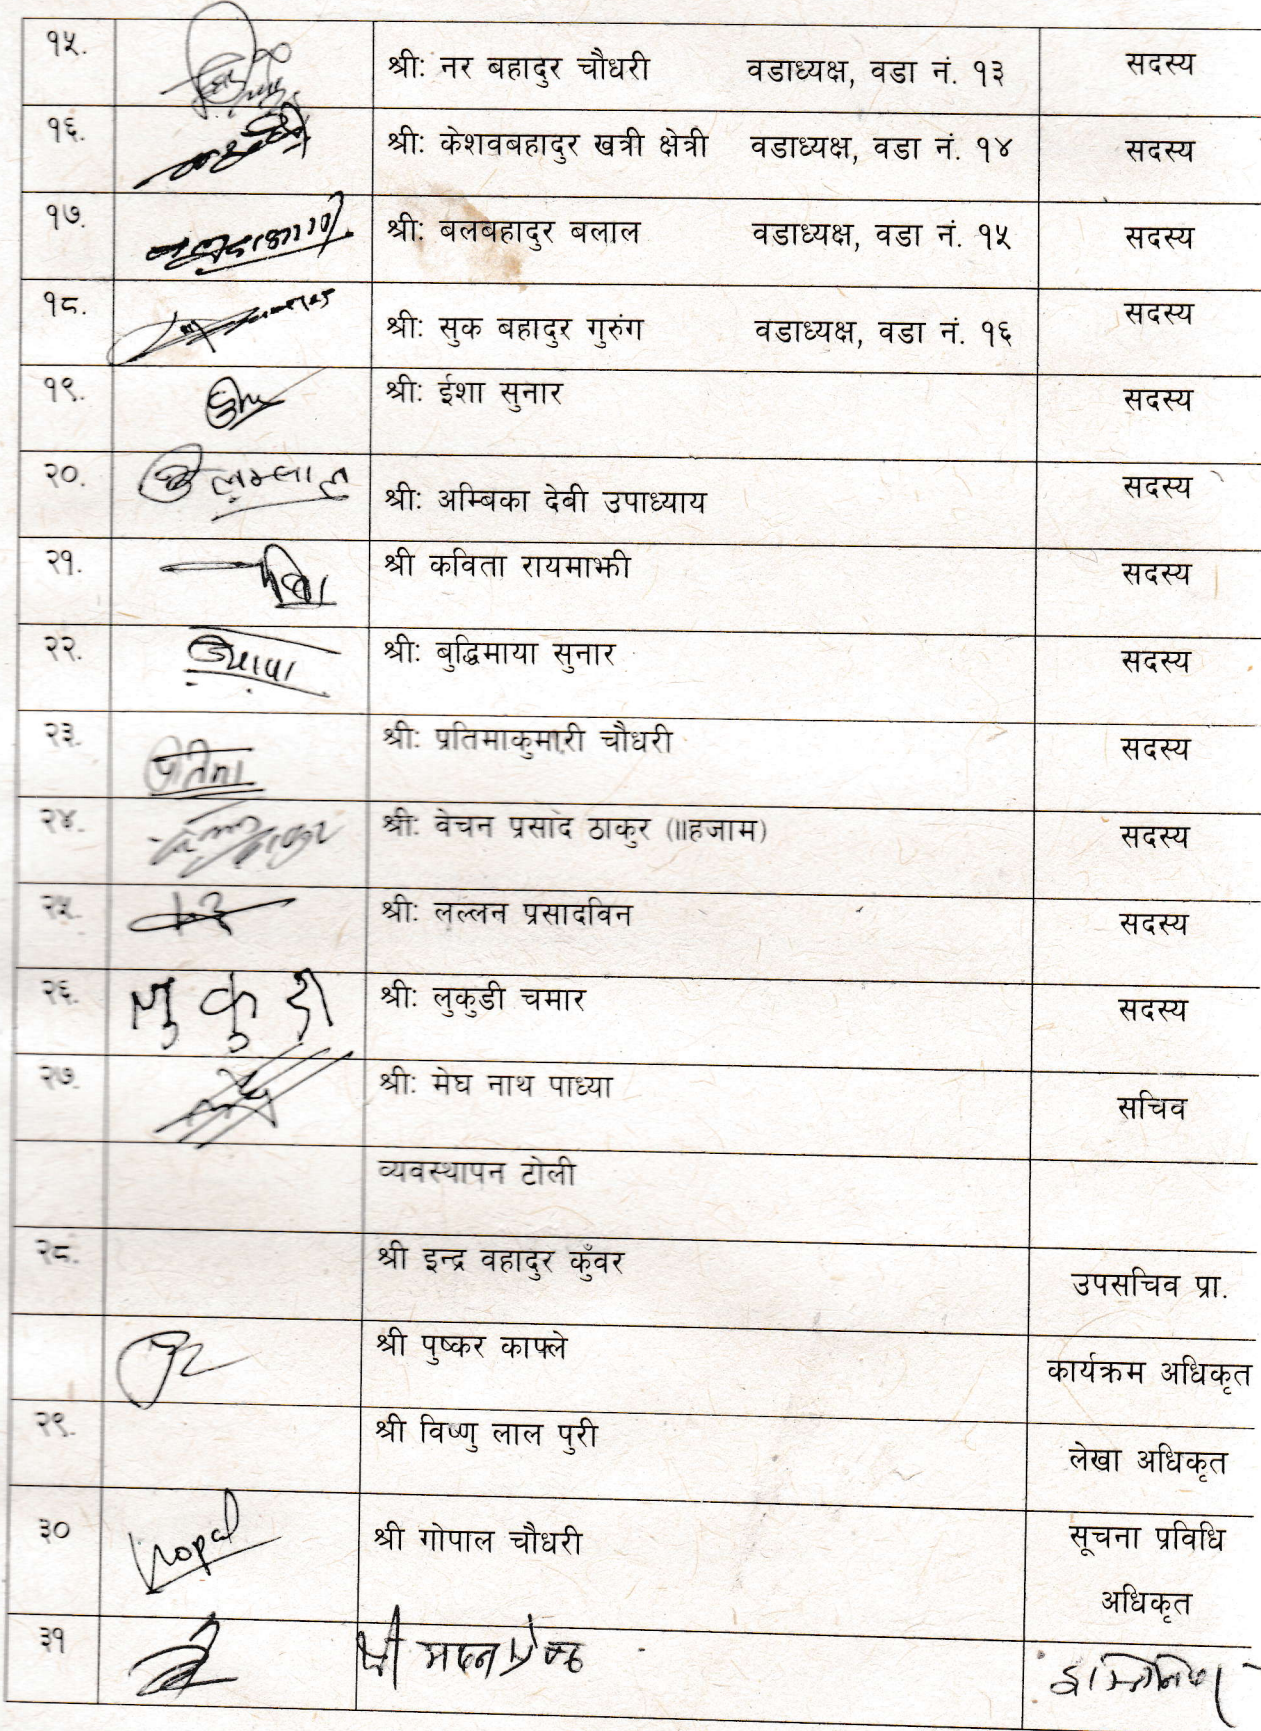 १५. श्री: नर बहादुर चौधरी वडाध्यक्ष, वडा नं. १३ सदस्य
१६. श्री: केशवबहादुर खत्री क्षेत्री वडाध्यक्ष, वडा नं. १४ सदस्य
१७. श्री: बलबहादुर बलाल वडाध्यक्ष, वडा नं. १५ सदस्य
१८. श्री: सुक बहादुर गुरुंग वडाध्यक्ष, वडा नं. १६ सदस्य
१९. श्री: ईशा सुनार सदस्य
२०. श्री: अम्बिका देवी उपाध्याय सदस्य
२१. श्री कविता रायमाझी सदस्य
२२. श्री: बुद्धिमाया सुनार सदस्य
२३. श्री: प्रतिमाकुमारी चौधरी सदस्य
२४. श्री: वेचन प्रसाद ठाकुर (॥हजाम) सदस्य
२५. श्री: लल्लन प्रसादविन सदस्य
२६. श्री: लुकुडी चमार सदस्य
२७. श्री: मेघ नाथ पाध्या सचिव
व्यवस्थापन टोली
२८. श्री इन्द्र वहादुर कुँवर उपसचिव प्रा.
श्री पुष्कर काफ्ले कार्यक्रम अधिकृत
२९. श्री विष्णु लाल पुरी लेखा अधिकृत
३० श्री गोपाल चौधरी सूचना प्रविधि
अधिकृत
३१ श्री मदन